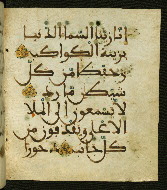 إنا زينا السماء الدنيا
بزينة الكواكب
وحفظا من كل
شيطان مارد
لا يسمعون إلى الملا
الأعلى ويقذفون من
كل جانب دحورا